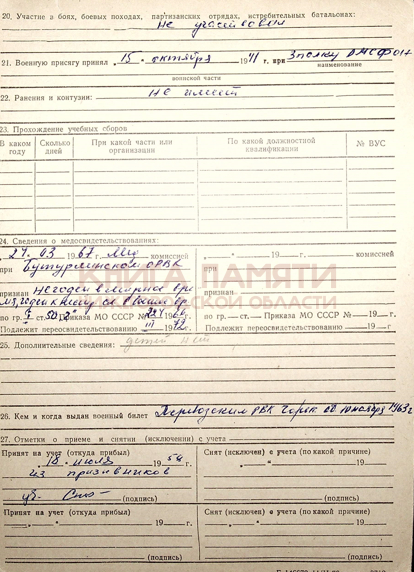 20. Участие в боях, боевых походах, партизанских отрядах, истребительных батальонах:
не участвовал
21. Военную присягу принял 15 октября 1941 г. при 3 полку
наименование
воинской части
22. Ранения и контузии: не имеет
23. Прохождение учебных сборов
В каком году Сколько дней При какой части или организации По какой должностной квалификации № ВУС
24. Сведения о медосвидетельствованиях:
27. 03 1967 комиссией " " 19 — г. комиссией
при Бутурлинском ОРВК при
признан негоден в мирное вре признан
мя, годен к в воен. вр
по гр. ст. Приказа МО СССР № 19 г. по гр. ст. Приказа МО СССР № — 19 г.
Подлежит переосвидетельствованию III 1972 г. Подлежит переосвидетельствованию 19 г.
КНИГА ПАМЯТИ
ОБЛАСТИ
25. Дополнительные сведения: детей нет
26. Кем и когда выдан военный билет РВК Горьк. января 1963 г
27. Отметки о приеме и снятии (исключении) с учета
Принят на учет (откуда прибыл) Снят (исключен) с учета (по какой причине)
18 июля 19 г. " " 19 г.
из призывников
(подпись) (подпись)
Принят на учет (откуда прибыл) Снят (исключен) с учета (по какой причине)
" " 19 г. " " 19 г.
(подпись) (подпись)